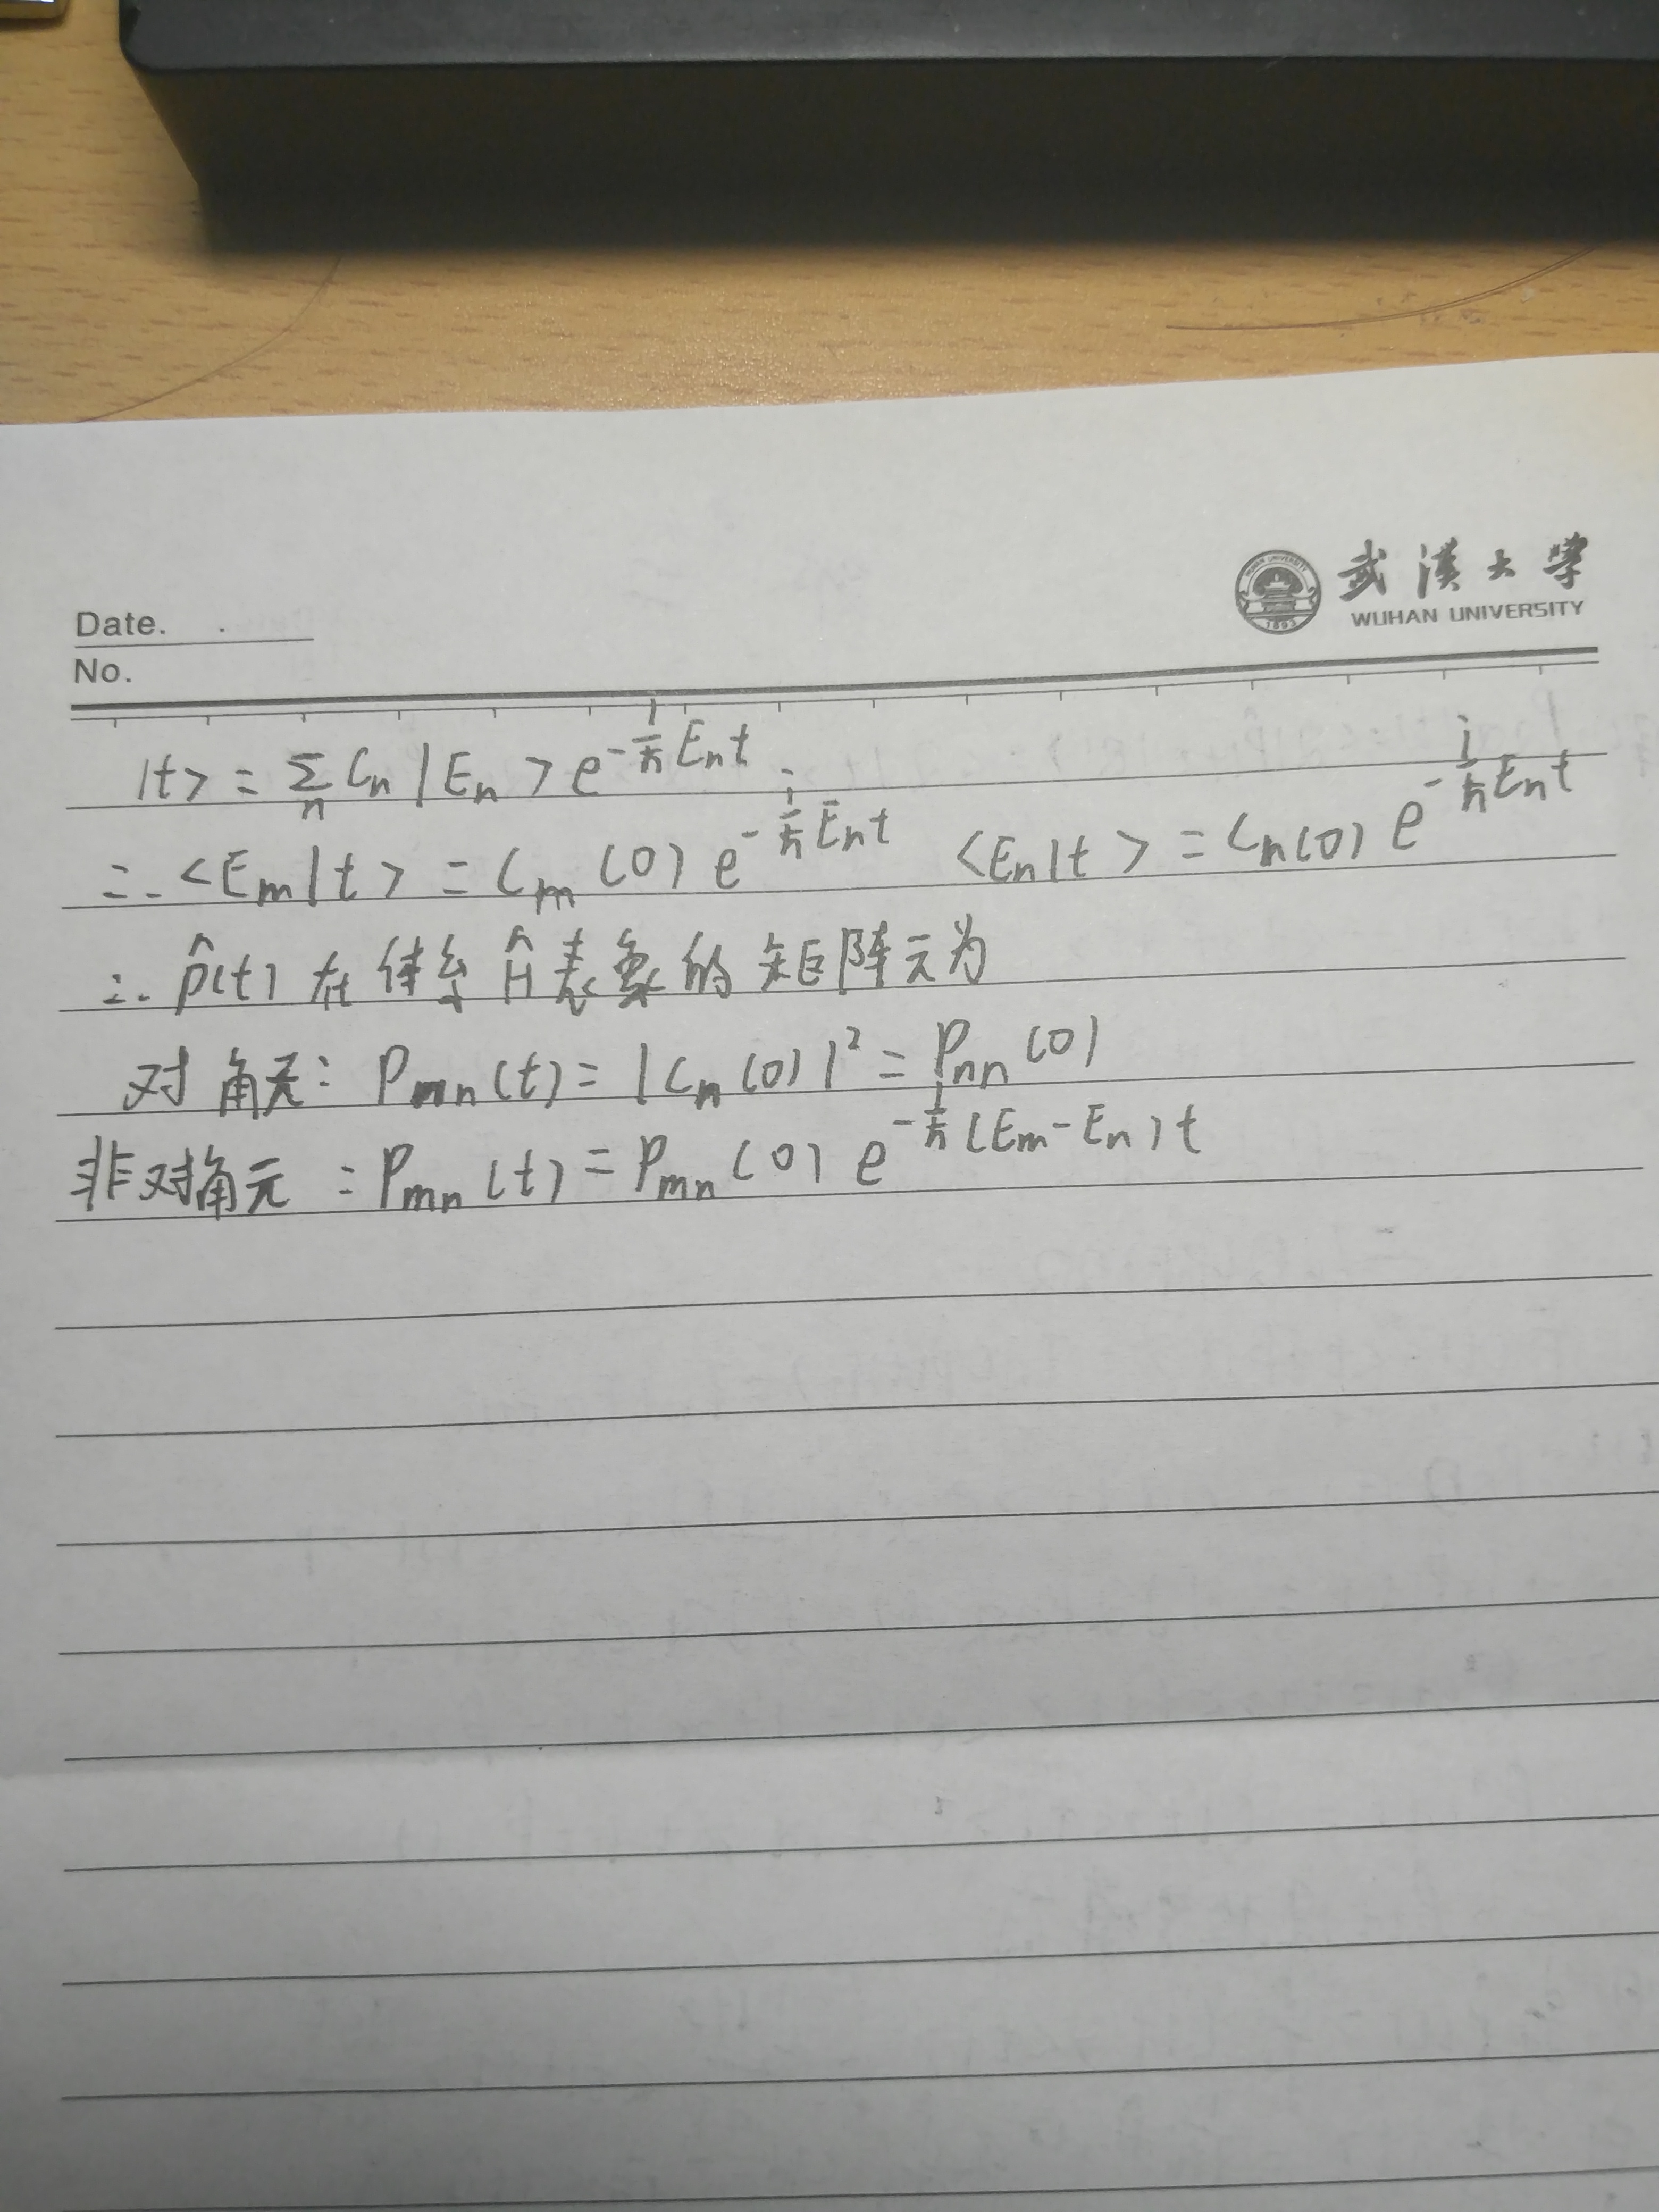 武漢大學
WUHAN UNIVERSITY
1893
Date.
No.
|t> = Σ_n C_n |E_n> e^{-i/ħ E_n t}
∴ <E_m|t> = C_m(0) e^{-i/ħ E_n t} <E_n|t> = C_n(0) e^{-i/ħ E_n t}
∴ ρ̂(t) 在体系 Ĥ 表象的矩阵元为
对角元: ρ_{nn}(t) = |C_n(0)|² = ρ_{nn}(0)
非对角元: ρ_{mn}(t) = ρ_{mn}(0) e^{-i/ħ (E_m - E_n) t}